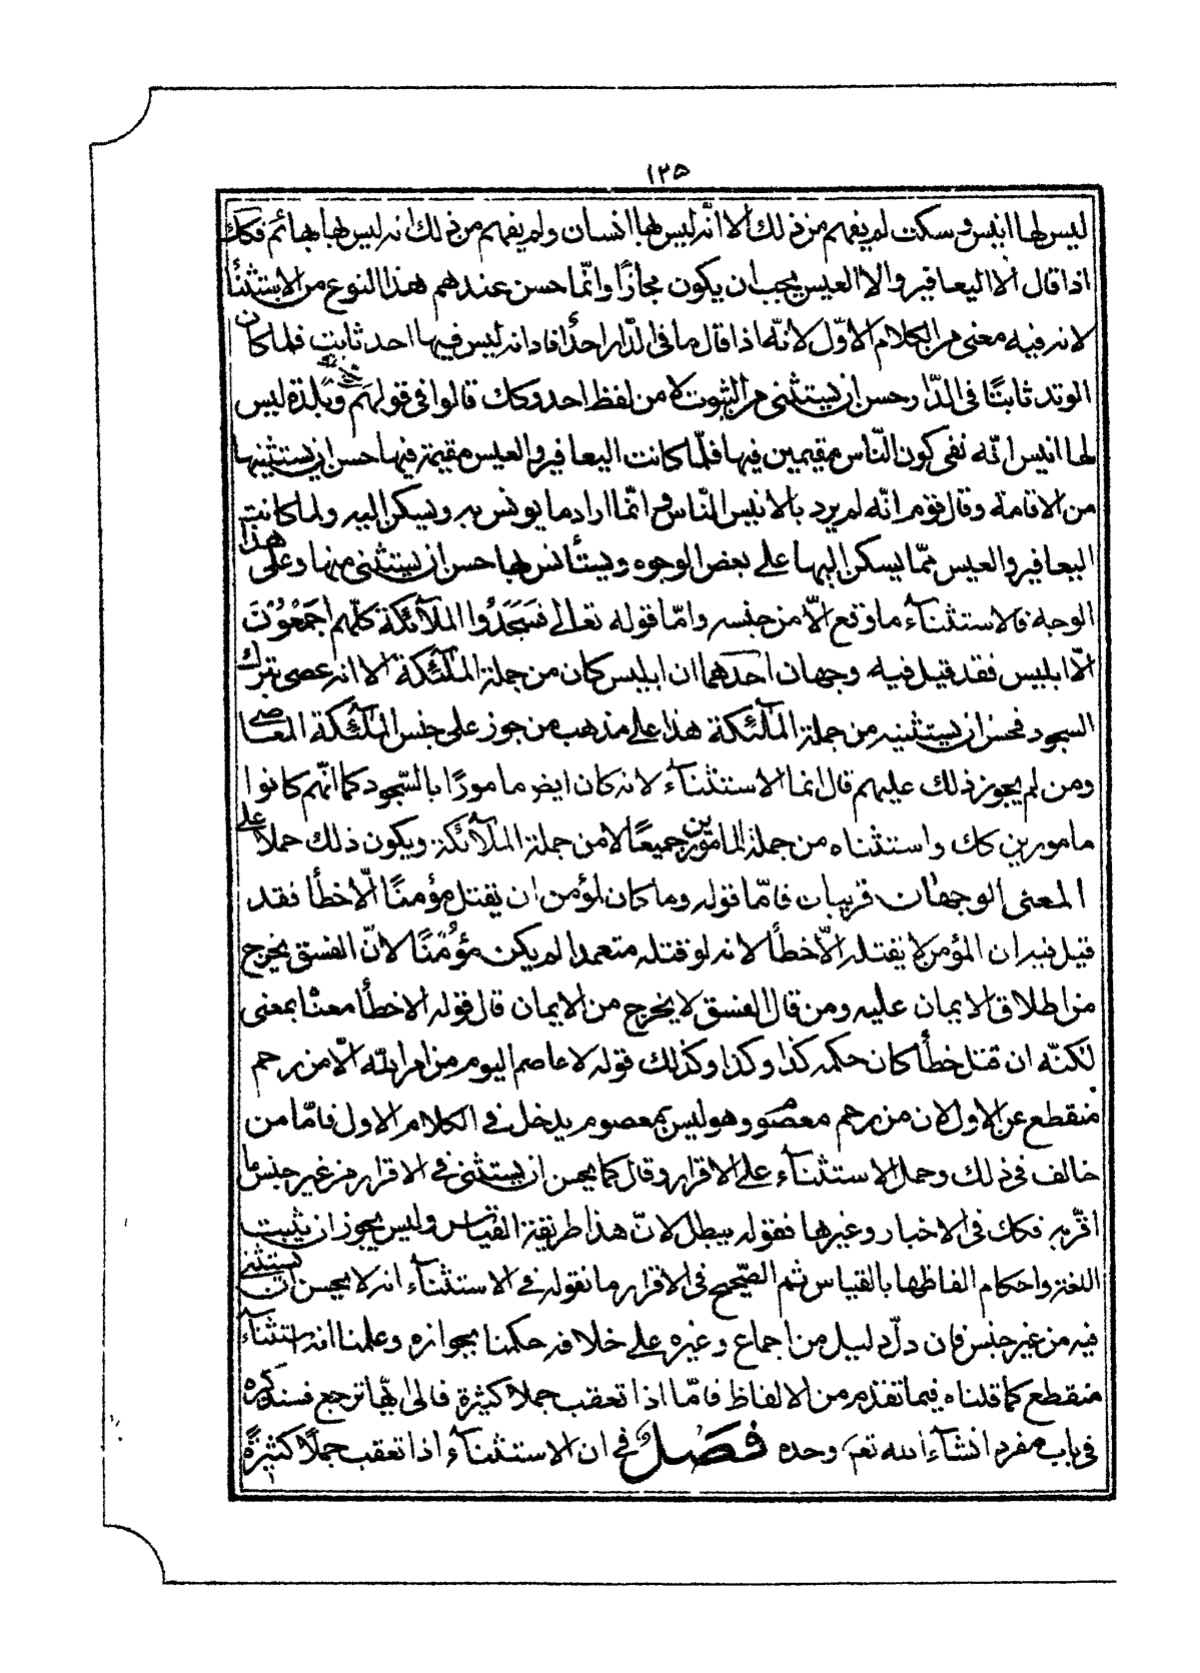 ١٢٥
ليس لها انيس و سكت لم يفهم من ذلك الا انّه ليس بها انسان ولم يفهم من ذلك انه ليس بها بهائم فكك
اذا قال الا اليعافير والا العيس يجب ان يكون مجازًا وانّما حسن عندهم هذا النوع من الاستثنأ
لانه فيه معنى من الكلام الاوّل لانّه اذا قال ما فى الدّار احدٌ افاد انه ليس فيها احد ثابت فلما كان
الوتد ثابتًا فى الدّار حسن ان يستثنى من الثبوت لا من لفظ احد وكك قالوا فى قولهم وبلدة ليس
لها انيس انّه نفى كون النّاس مقيمين فيها فلمّا كانت اليعافير والعيس مقيمة فيها حسن ان يستثنيها
من الاقامة وقال قوم انّه لم يرد بالانيس النّاس و انّما اراد ما يونس به ويسكن اليه ولما كانت
اليعافير والعيس ممّا يسكن اليها على بعض الوجوه ويستأنس بها حسن ان يستثنى منها وعلى هذا
الوجه فالاستثنآء ما وقع الاّ من جنسه وامّا قوله تعالى فَسَجَدُوا الملآئكة كلّهم اَجمَعُونَ
الاّ ابليس فقد قيل فيه وجهان احدهما ان ابليس كان من جملة الملٓئكة الا انه عصى بترك
السجود فحسن ان يستثنيه من جملة الملٓئكة هذا على مذهب من جوز على جنس الملٓئكة المعاصى
ومن لم يجوز ذلك عليهم قال انما الاستثنآء لانه كان ايض مامورًا بالسّجود كما انّهم كانوا
مامورين كك واستثناه من جملة المامورين جميعًا لا من جملة الملآئكة ويكون ذلك حملا على
المعنى الوجهان قريبان فامّا قوله وما كان لمؤمن ان يقتل مؤمنًا الّا خطأ فقد
قيل فيه ان المؤمن لا يقتله الّا خطأ لانه لو قتله متعمدا لم يكن مؤُمنًا لانّ الفسق يخرج
من اطلاق الايمان عليه ومن قال الفسق لا يخرج من الايمان قال قوله الا خطأ معناه بمعنى
لكنّه ان قتل خطأ كان حكمه كذا وكذا وكذلك قوله لا عاصم اليوم من امر الله الّا من رحم
منقطع عن الاول لان من رحم معصوم وهو ليس بمعصوم يدخل فى الكلام الاول فامّا من
خالف فى ذلك وحمل الاستثنآء على الاقرار وقال كما يحسن ان يستثنى فى الاقرار من غير جنس ما
اقرّ به فكك فى الاخبار وغيرها فقوله يبطل لانّ هذا طريقة القياس وليس يجوز ان يثبت
اللغة واحكام الفاظها بالقياس ثم الصّحيح فى الاقرار ما نقوله فى الاستثنآء انه لا يحسن ان يستثنى
فيه من غير جنس فان دلّ دليل من اجماع وغيره على خلافه حكمنا بجوازه وعلمنا انه استثنآء
منقطع كما قلناه فيما تقدم من الالفاظ فامّا اذا تعقب جملا كثيرة فالى ايّها ترجع فسنذكره
فى باب مفرد انشآء الله تعم وحده فصل فى ان الاستثنآء اذا تعقب جملًا كثيرةً